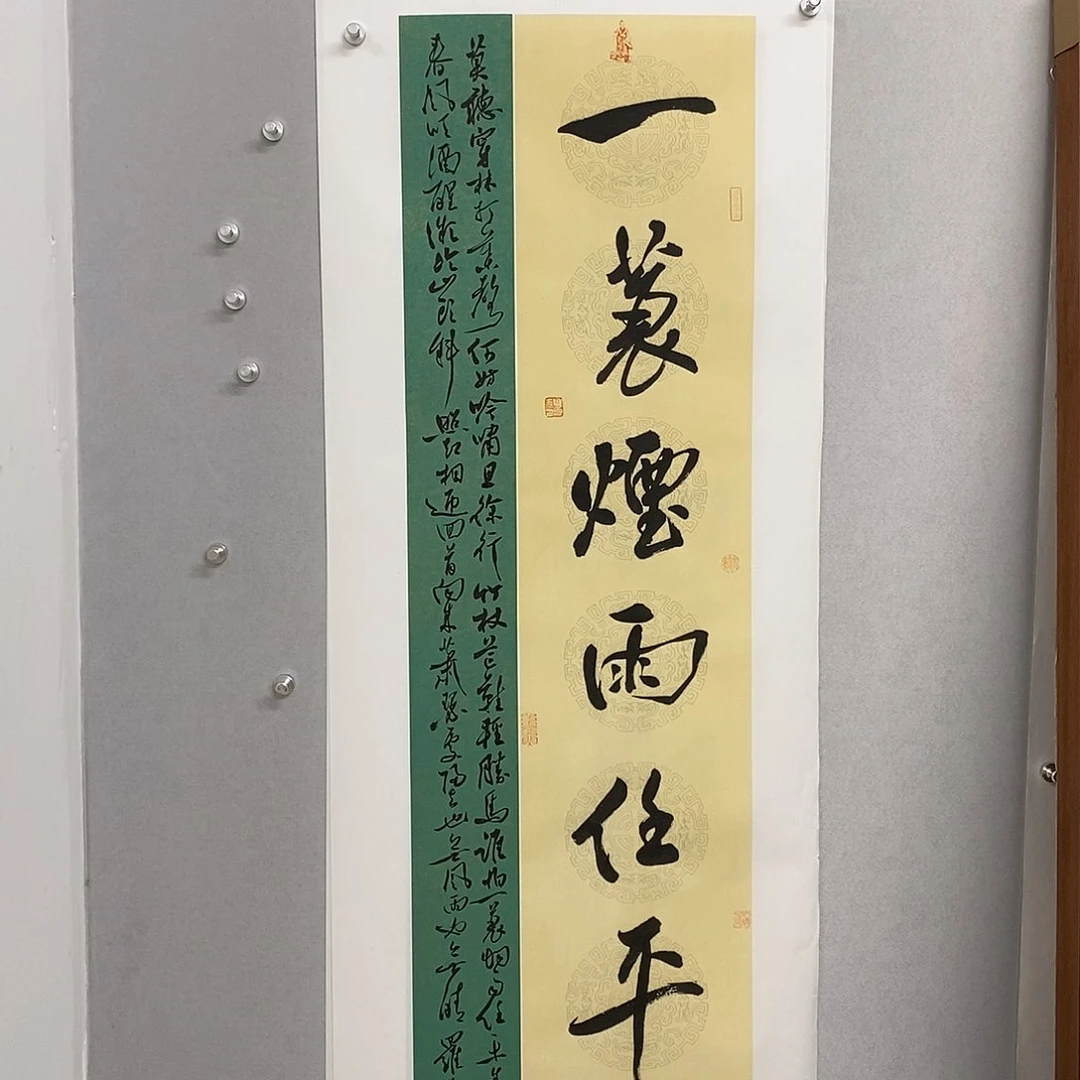 一蓑煙雨任平
莫聽穿林打葉聲何妨吟嘯且徐行竹杖芒鞋輕勝馬誰怕一蓑烟雨任平生
春風吹酒醒微冷山頭斜照却相迎回首向來蕭瑟處歸去也無風雨也無晴羅